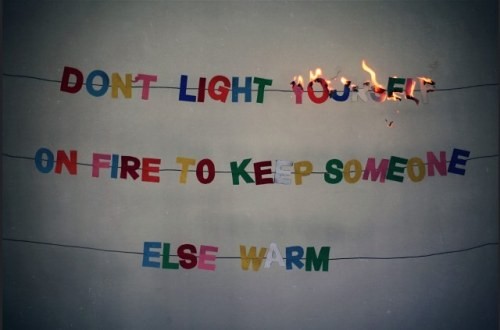 DON'T LIGHT YOURSELF
ON FIRE TO KEEP SOMEONE
ELSE WARM